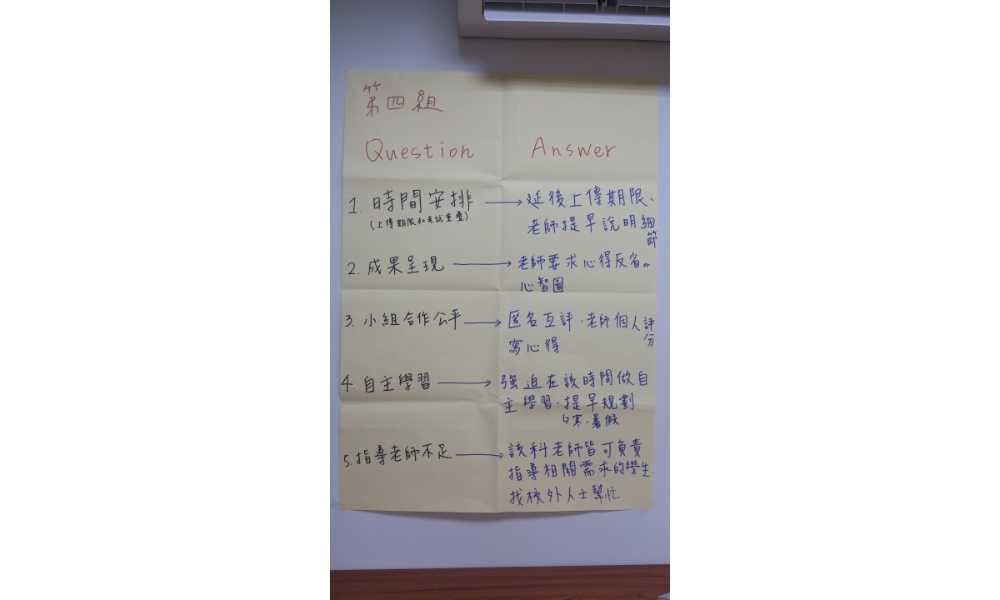 第四組
Question
Answer
1. 時間安排 → 延後上傳期限、
(上傳期限和考試重疊)
老師提早說明細
節
2. 成果呈現 → 老師要求心得反省。
心智圖
3. 小組合作公平 → 匿名互評.老師個人評
分
寫心得
4. 自主學習 → 強迫在該時間做自
主學習.提早規劃
寒.暑假
5. 指導老師不足 → 該科老師皆可負責
指導相關需求的學生.
找校外人士幫忙